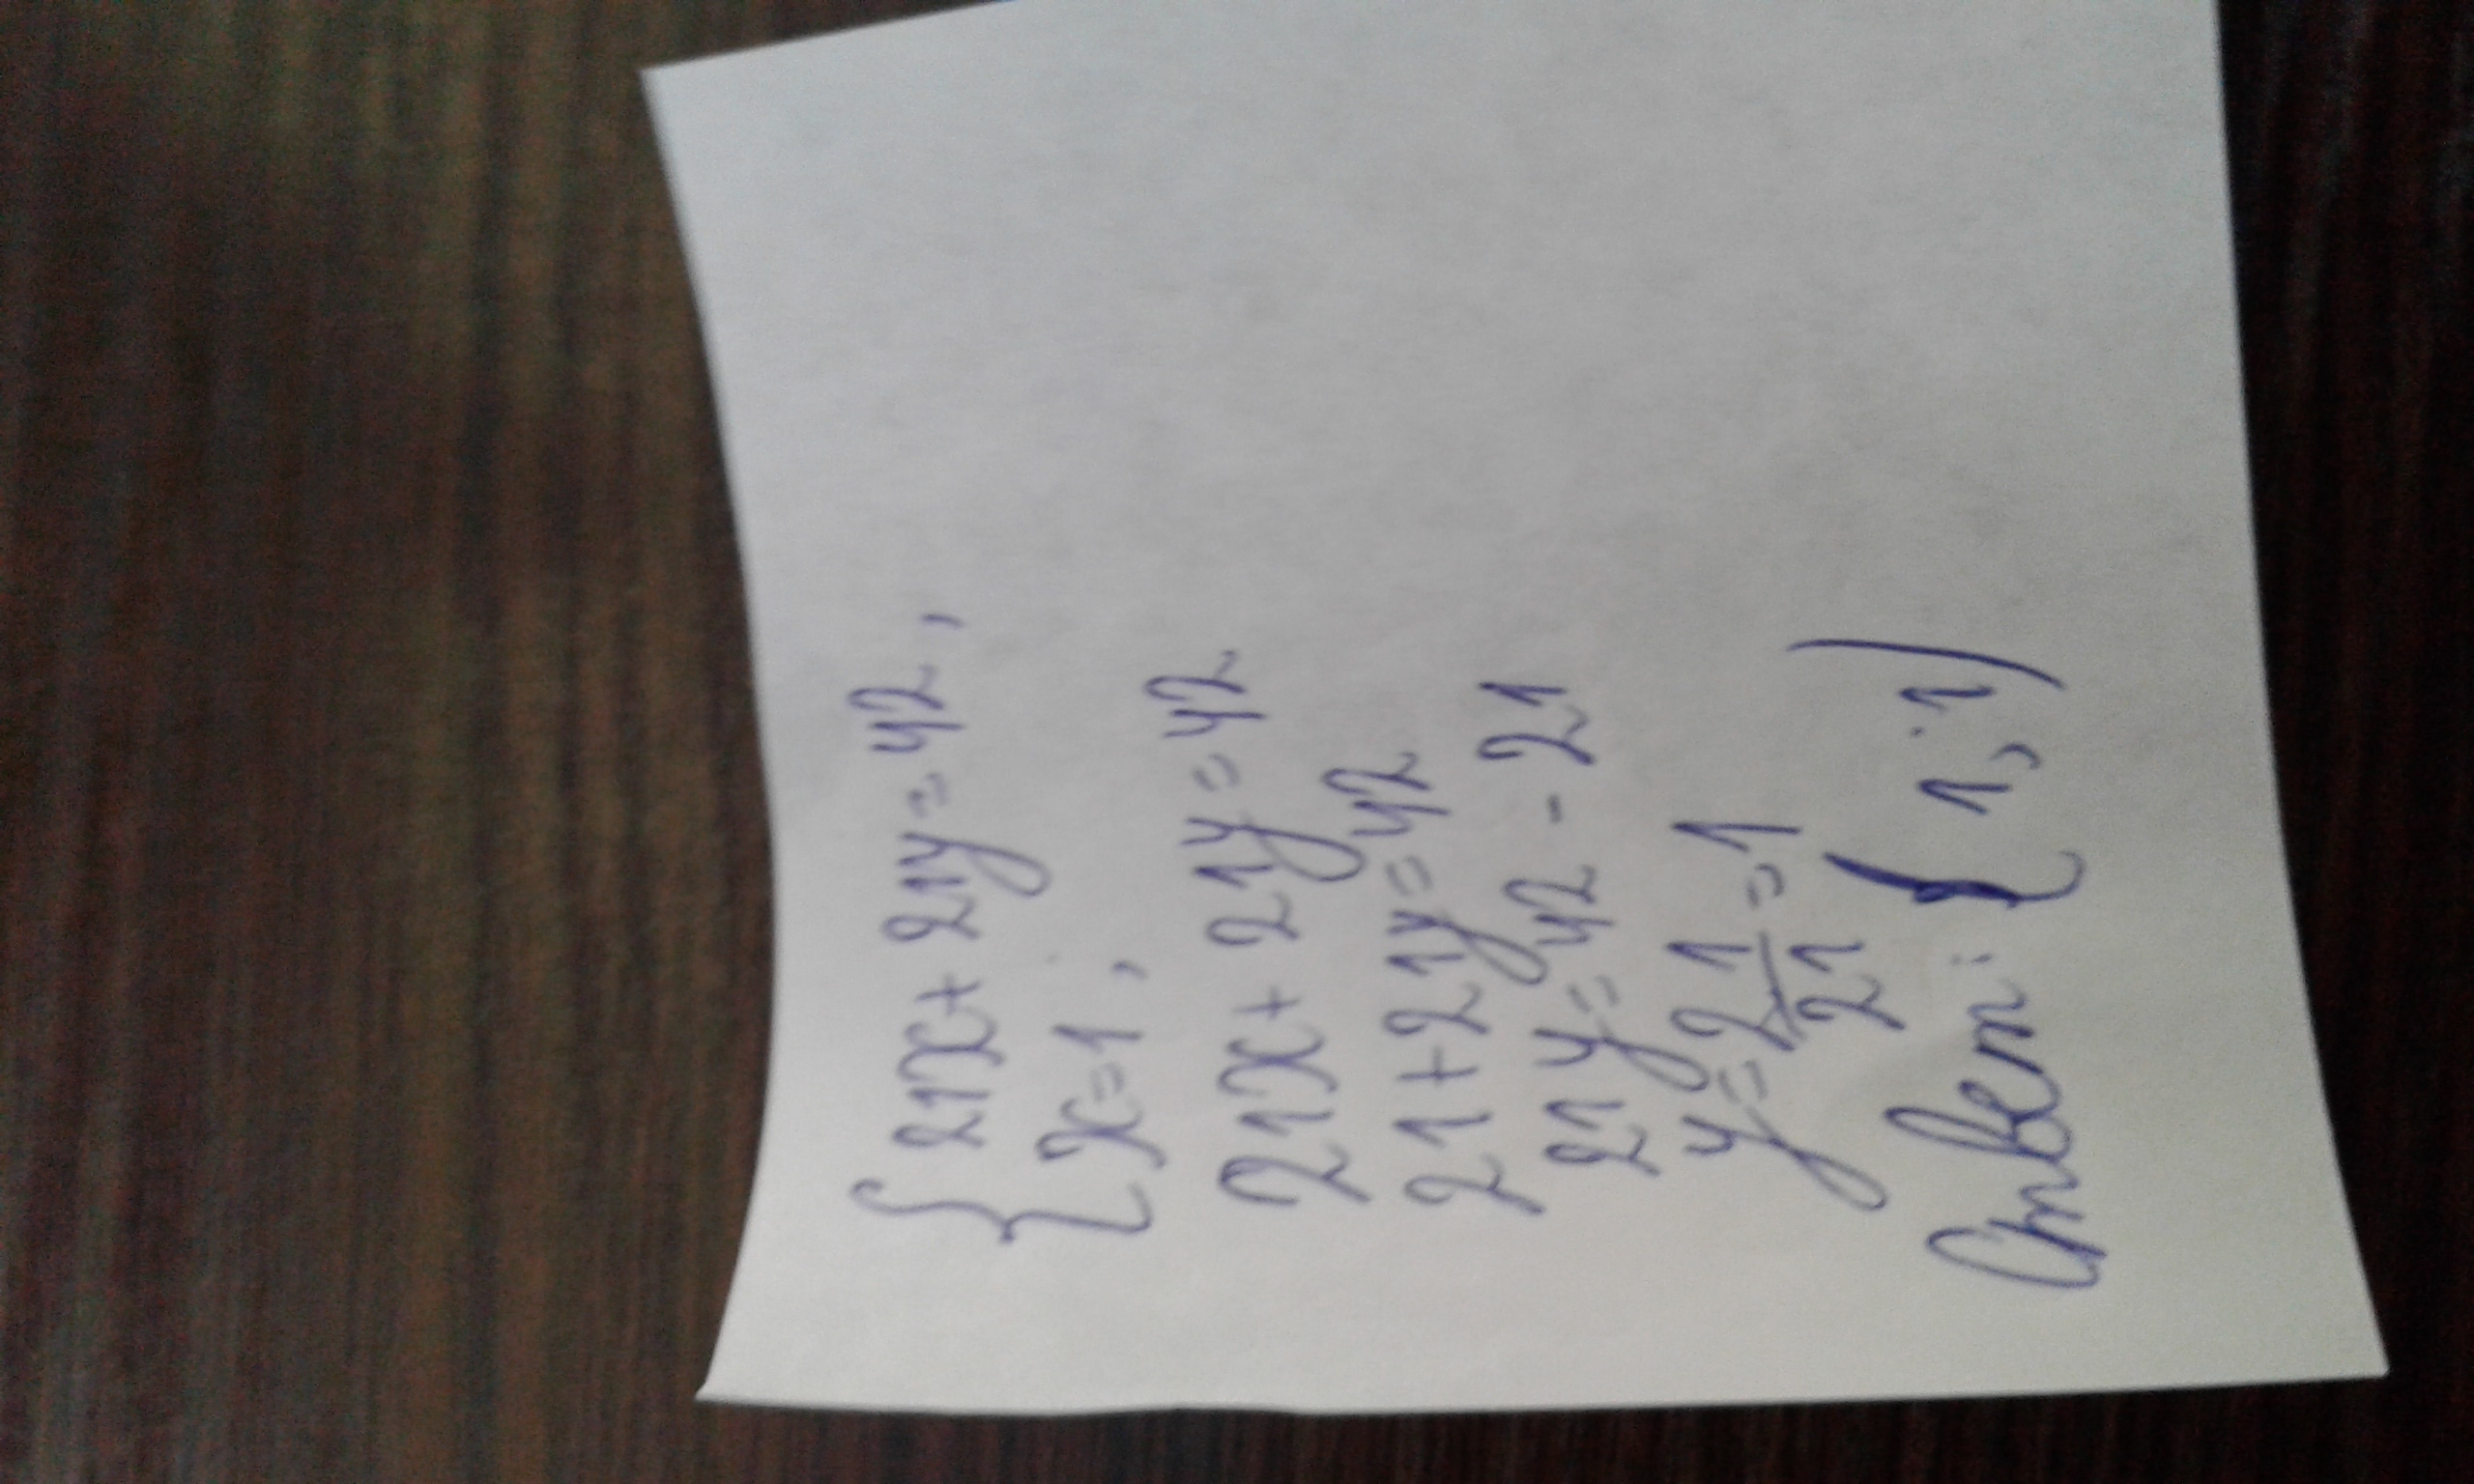 { 21x + 21y = 42,
x = 1,
21x + 21y = 42
21 + 21y = 42
21y = 42 - 21
y = 21/21 = 1
Ответ: { 1; 1)